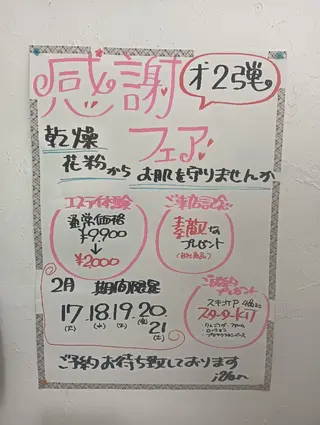 感謝
オ2弾
フェア
乾燥
花粉から お肌を守りませんか
エステ体験
通常価格
¥9,900
↓
¥2000
ご来店記念
素敵な
プレゼント
2月 期間限定
17.18.19.20.
21
(火) (水) (木) (金)
(土)
プレゼント
スターターキット
ご予約お待ち致しております